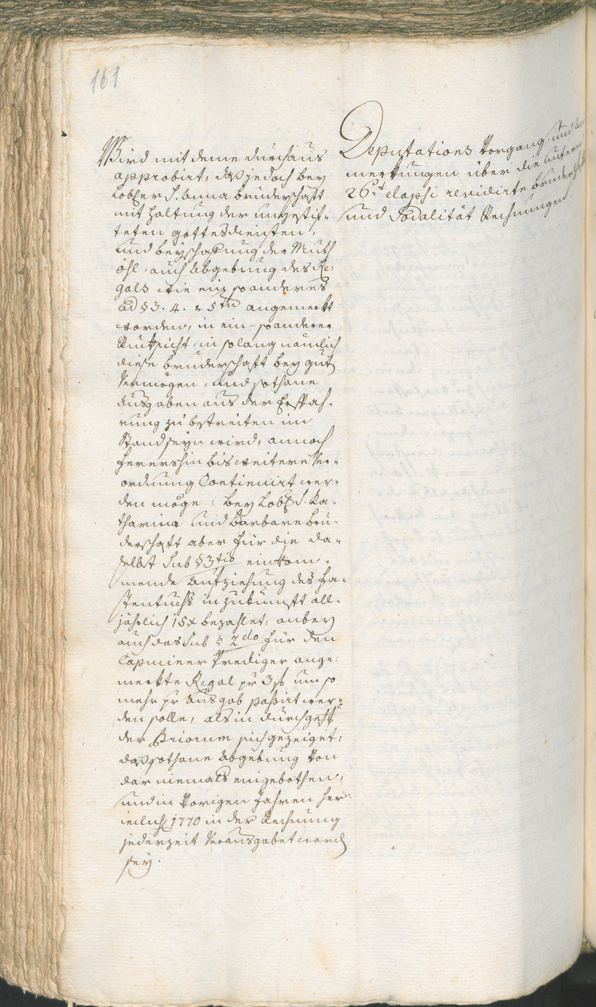 161
Wird mit deme durchaus
approbirt, daß jedoch bey
Lobl: S. Anna bruderschaft
mit haltung der ungestif-
teten gottesdiensten,
und beyschaffung der
öhl, auch Abgebung des Re-
gals wie ein so anderes
ad § 3. 4. & 5tu angemerkt
worden, in ein so anderer
Rucksicht, in solang nämlich
diese bruderschaft bey gut
Vermögen, und sothane
Ausgaben aus der Erspah-
rung zu bestreiten im
Stand seyn wird, annoch
fernershin bis weitere Ver-
ordnung Continuirt wer-
den möge: bey Lobl: S. Ka-
tharina und Barbara bru-
derschaft aber für die da-
selbst sub § 3tio einkom-
mende Aufziehung des Fa-
stentuchs in zukunft all-
jährlich 15 x bezahlet, anbey
auch das sub § 2do für den
Capuciner Prediger ange-
merkte Regal pr 3 f um so
mehr pr Ausgab passirt wer-
den solle, als in durchgehung
der Priorum sich gezeiget:
daß sothane Abgebung von
dar niemals eingebothen,
und in vorigen Jahren
1770 in der Rechnung
jederzeit verausgabet worden
sey.
Deputations Vorgang und An-
merkungen über die unterm
26t elapsi revidirte bruderschaft
und Sodalität Rechnungen